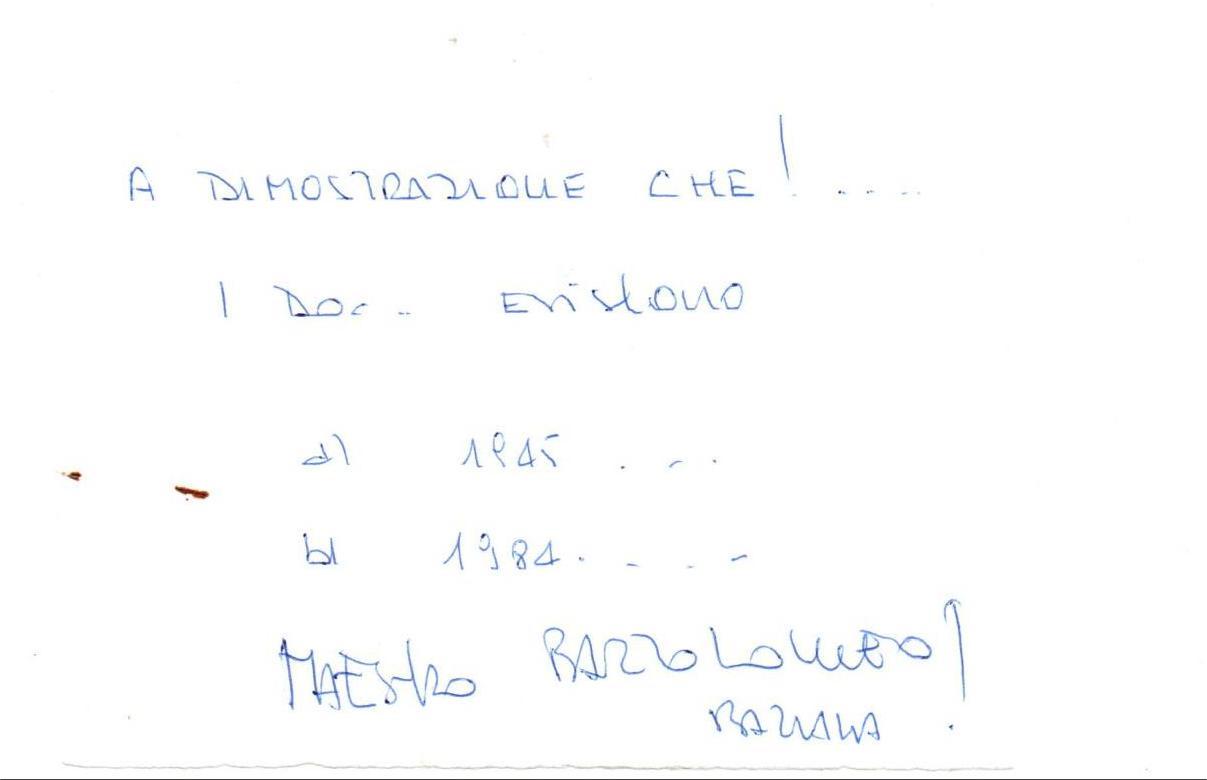 A DIMOSTRAZIONE CHE! ....
I DOC.. ESISTONO
a) 1945 . . .
b) 1984. . . . .
MAESTRO BARTOLOMEO!